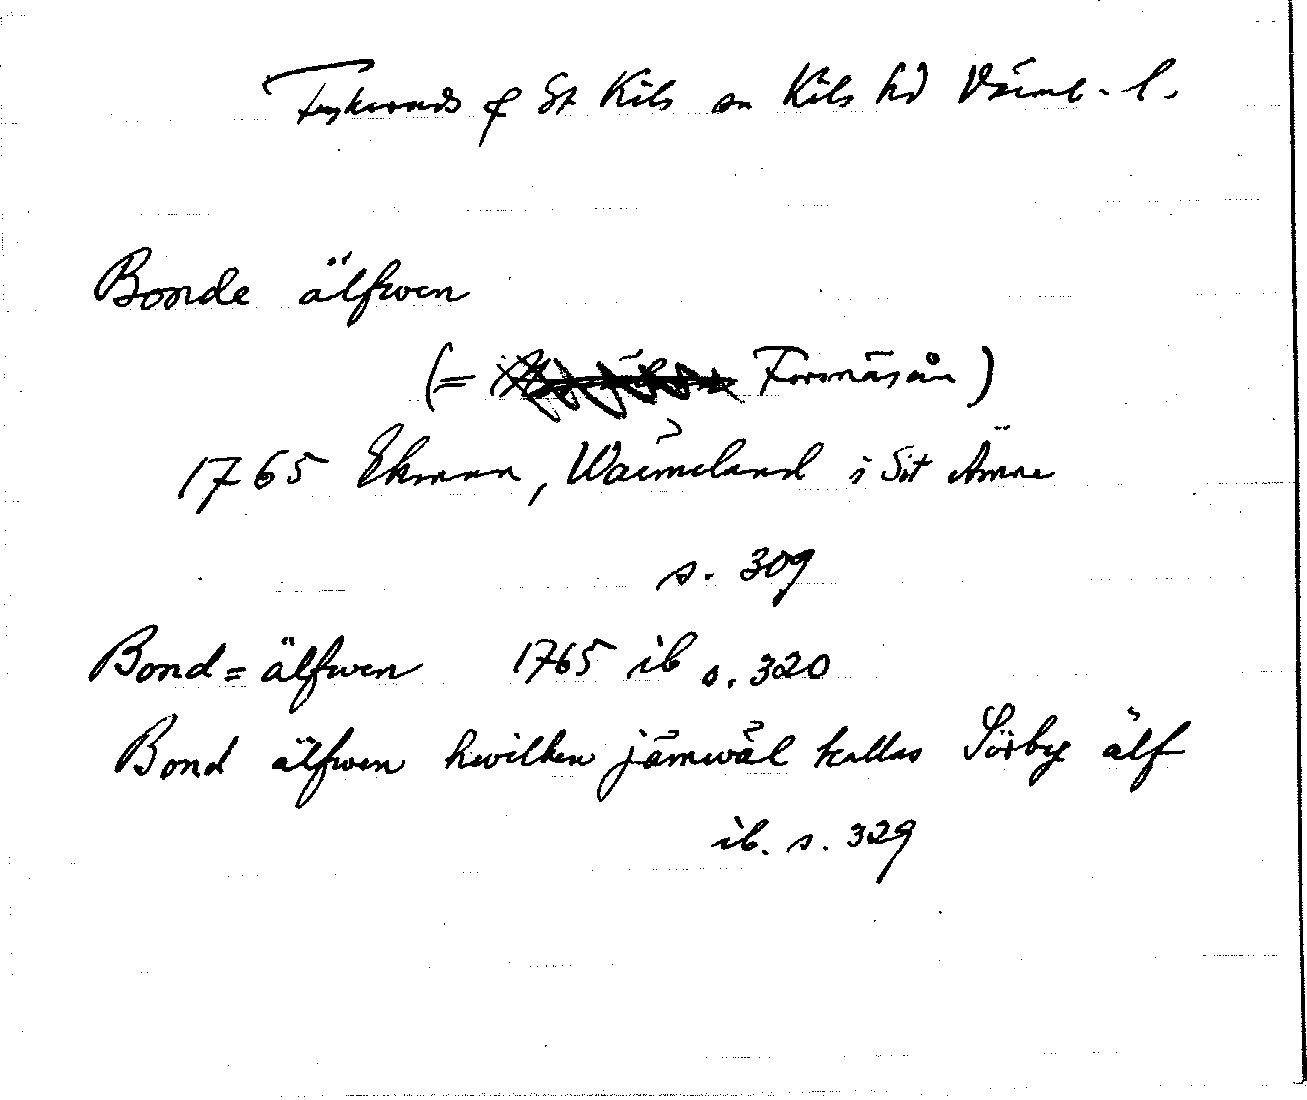 Frykeruds o St Kils sn Kils hd Värml. l.
Bonde älfwen
(= Forsnäsån)
1765 Ekman, Wärmeland i Sit Ämne
s. 309
Bond=älfwen 1765 ib s. 320
Bond älfwen hwilken jämwäl kallas Sörby älf
ib. s. 329